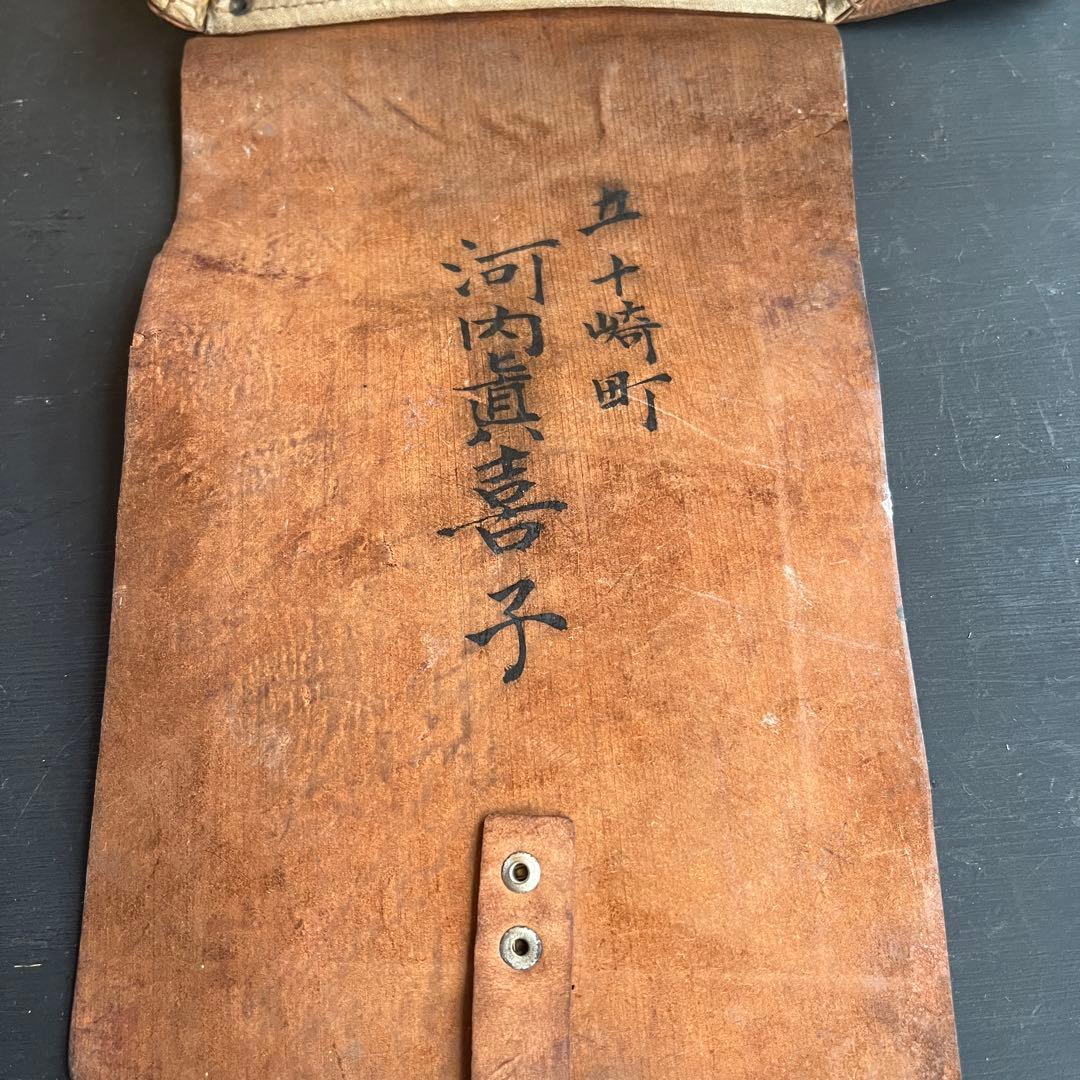 五十崎町
河内眞喜子